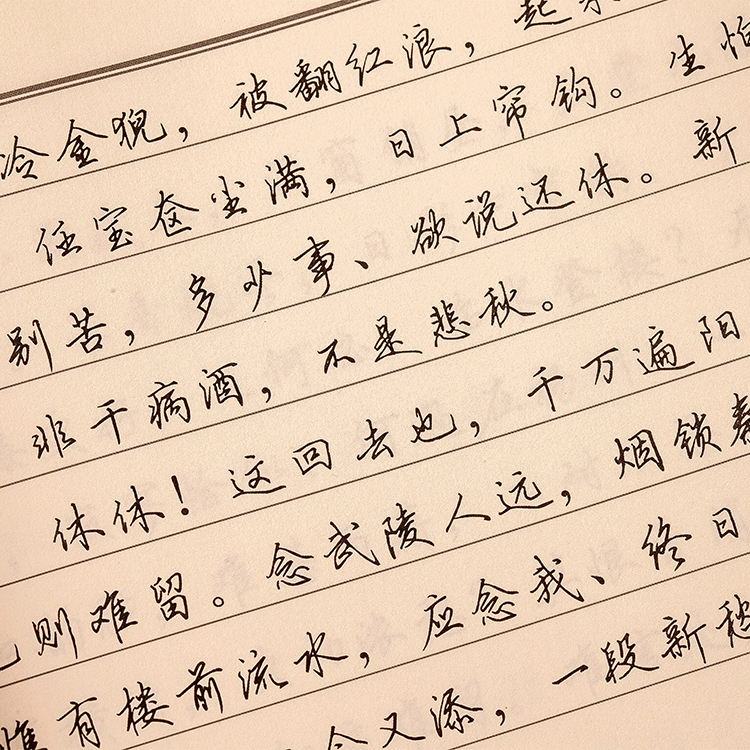 冷金猊，被翻红浪，起来
任宝奁尘满，日上帘钩。生怕
别苦，多少事、欲说还休。新
非干病酒，不是悲秋。
休休！这回去也，千万遍阳
则难留。念武陵人远，烟锁秦
惟有楼前流水，应念我、终日
今又添，一段新愁